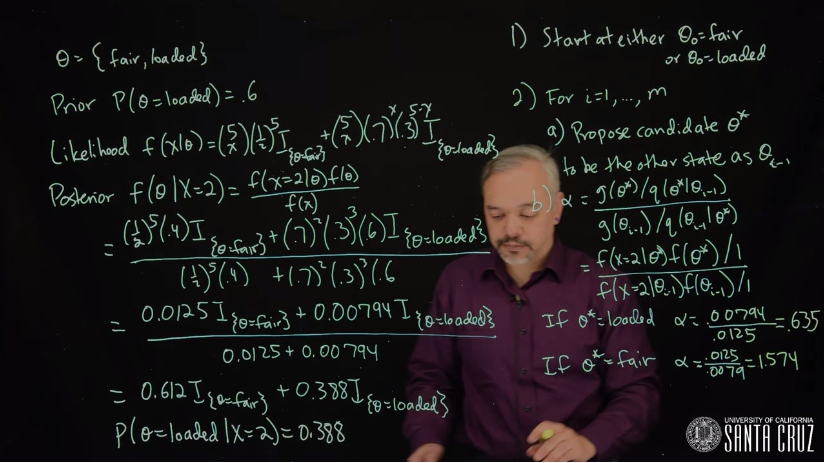 θ = {fair, loaded}
Prior P(θ=loaded) = .6
Likelihood f(x|θ) = (5 x)(1/2)^5 I_{θ=fair} + (5 x)(.7)^x (.3)^{5-x} I_{θ=loaded}
Posterior f(θ|X=2) = f(x=2|θ)f(θ) / f(x)
= (1/2)^5(.4) I_{θ=fair} + (.7)^2(.3)^3(.6) I_{θ=loaded}
(1/2)^5(.4) + (.7)^2(.3)^3(.6
= 0.0125 I_{θ=fair} + 0.00794 I_{θ=loaded}
0.0125 + 0.00794
= 0.612 I_{θ=fair} + 0.388 I_{θ=loaded}
P(θ=loaded|X=2) = 0.388
1) Start at either θ₀=fair
or θ₀=loaded
2) For i=1,...,m
a) Propose candidate θ*
to be the other state as θ_{i-1}
b) α = g(θ*)/q(θ*|θ_{i-1})
g(θ_{i-1})/q(θ_{i-1}|θ*)
= f(x=2|θ*)f(θ*)/1
f(x=2|θ_{i-1})f(θ_{i-1})/1
If θ*=loaded α = .00794/.0125 = .635
If θ*=fair α = .0125/.0079 = 1.574
UNIVERSITY OF CALIFORNIA
SANTA CRUZ